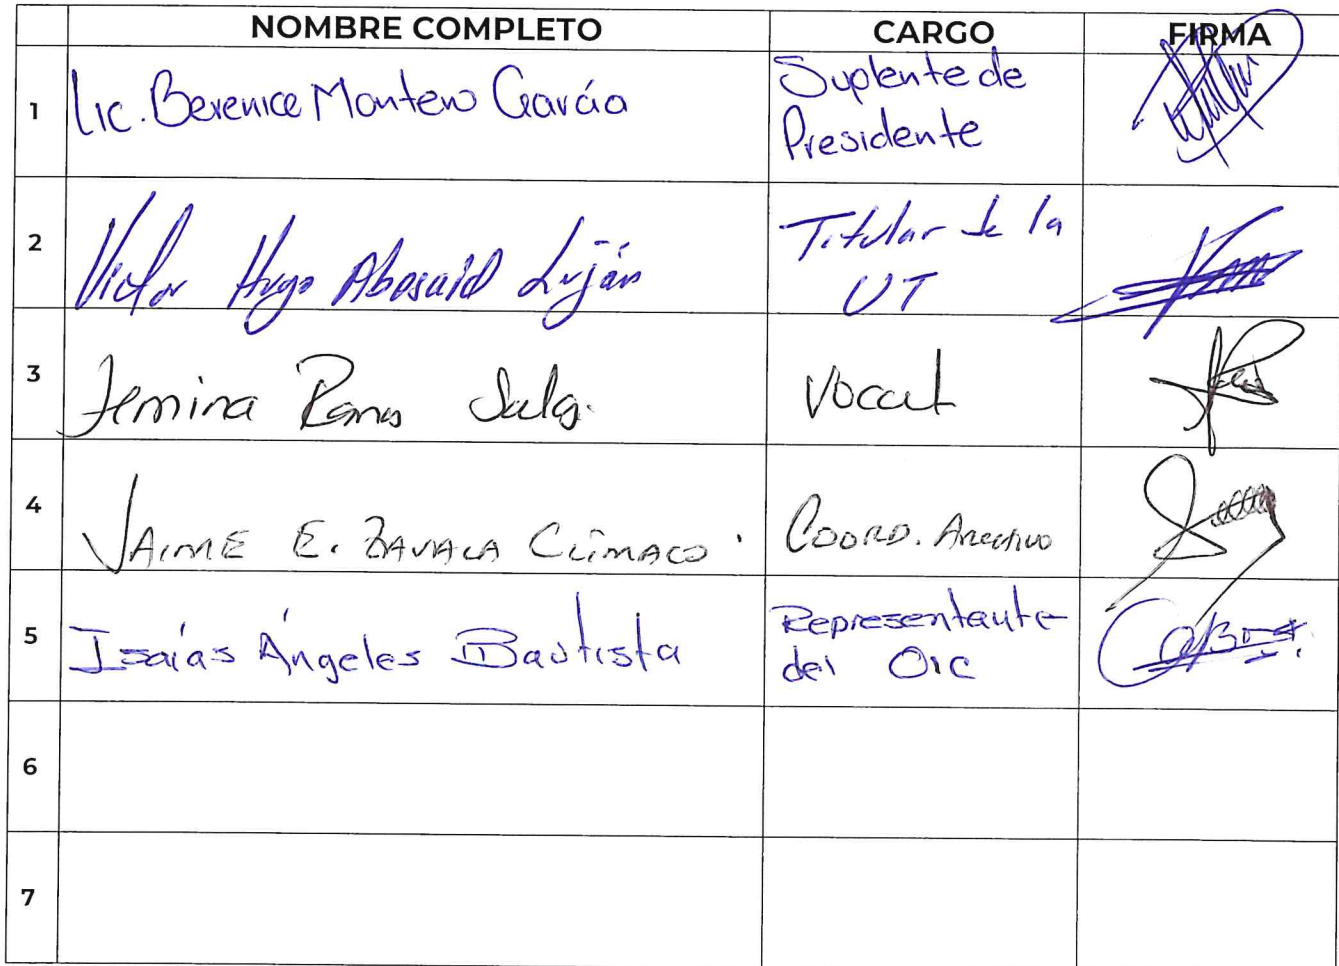 NOMBRE COMPLETO CARGO FIRMA
1 Lic. Berenice Montero García Suplente de
Presidente
2 Victor Hugo Abosaid Luján Titular de la
UT
3 Jemina Ramos Vocal
4 JAIME E. ZAVALA CLÍMACO COORD. ARCHIVO
5 Isaías Ángeles Bautista Representante
del OIC
6
7